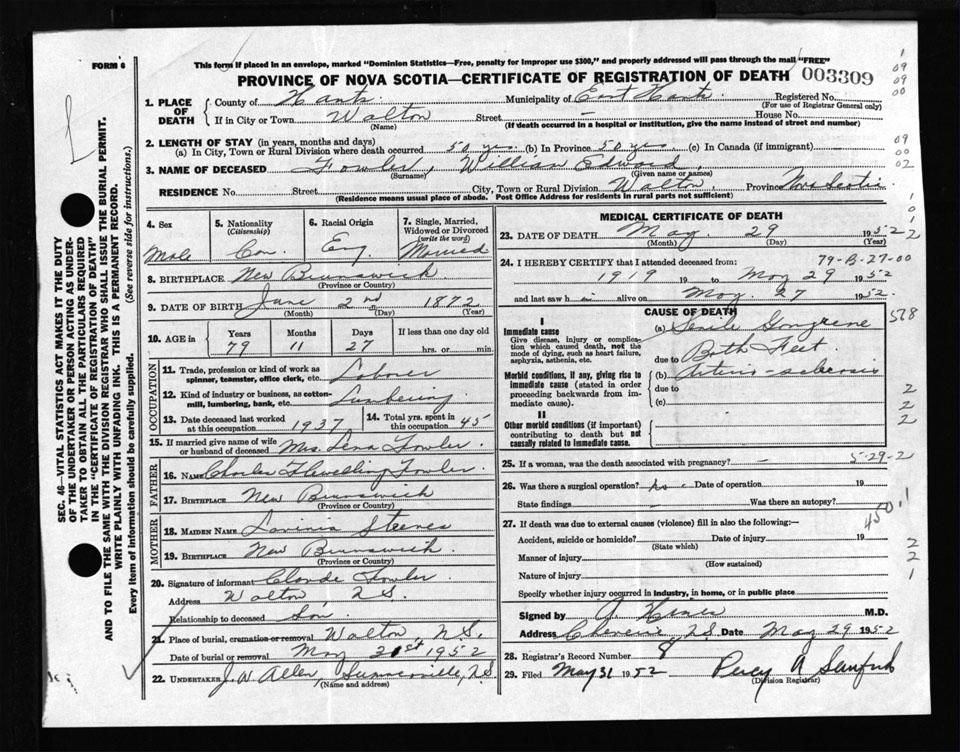 FORM 6
This form if placed in an envelope, marked "Dominion Statistics—Free, penalty for improper use $300," and properly addressed will pass through the mail "FREE"
PROVINCE OF NOVA SCOTIA—CERTIFICATE OF REGISTRATION OF DEATH 003309
1. PLACE OF DEATH
County of Hants Municipality of East Hants Registered No.
(For use of Registrar General only)
If in City or Town Walton Street — House No.
(Name) (If death occurred in a hospital or institution, give the name instead of street and number)
2. LENGTH OF STAY (in years, months and days)
(a) In City, Town or Rural Division where death occurred 50 yrs. (b) In Province 50 yrs. (c) In Canada (if immigrant)
3. NAME OF DECEASED Fowler, William Edward
(Surname) (Given name or names)
RESIDENCE No. Street City, Town or Rural Division Walton, Province Nova Scotia
(Residence means usual place of abode. Post Office Address for residents in rural parts not sufficient)
4. Sex Male
5. Nationality (Citizenship) Can.
6. Racial Origin Eng
7. Single, Married, Widowed or Divorced (write the word) Married
8. BIRTHPLACE New Brunswick
(Province or Country)
9. DATE OF BIRTH June 2nd 1872
(Month) (Day) (Year)
10. AGE in Years 79 Months 11 Days 27 If less than one day old hrs. or min.
OCCUPATION
11. Trade, profession or kind of work as spinner, teamster, office clerk, etc. Laborer
12. Kind of industry or business, as cotton-mill, lumbering, bank, etc. Lumbering
13. Date deceased last worked at this occupation 1937
14. Total yrs. spent in this occupation 45
15. If married give name of wife or husband of deceased Mrs. Fowler
FATHER
16. NAME Charles Flwelling Fowler
17. BIRTHPLACE New Brunswick
(Province or Country)
MOTHER
18. MAIDEN NAME Lavinia Steeves
19. BIRTHPLACE New Brunswick.
(Province or Country)
20. Signature of informant Claude Fowler
Address Walton, N.S.
Relationship to deceased Son
21. Place of burial, cremation or removal Walton, N.S.
Date of burial or removal May 31st 1952
22. UNDERTAKER J. W. Allen, Summerville, N.S
(Name and address)
MEDICAL CERTIFICATE OF DEATH
23. DATE OF DEATH May 29 1952
(Month) (Day) (Year)
24. I HEREBY CERTIFY that I attended deceased from: 79-B-27-00
1919 19 to May 29 1952
and last saw him alive on May 27 1952.
CAUSE OF DEATH
I
Immediate cause
Give disease, injury or complication which caused death, not the mode of dying, such as heart failure, asphyxia, asthenia, etc.
(a) Senile Gangrene
due to Both Feet
Morbid conditions, if any, giving rise to immediate cause (stated in order proceeding backwards from immediate cause).
(b) Arterio-sclerosis
due to
(c)
II
Other morbid conditions (if important) contributing to death but not causally related to immediate cause.
25. If a woman, was the death associated with pregnancy? — 5-29-2
26. Was there a surgical operation? No Date of operation 19
State findings Was there an autopsy?
27. If death was due to external causes (violence) fill in also the following:—
Accident, suicide or homicide? Date of injury 19
(State which)
Manner of injury
(How sustained)
Nature of injury
Specify whether injury occurred in industry, in home, or in public place
Signed by M.D.
Address Cheverie, N.S. Date May 29 1952
28. Registrar's Record Number 8
29. Filed May 31 1952 Percy A Sanford
(Division Registrar)
SEC. 46—VITAL STATISTICS ACT. MAKES IT THE DUTY
OF THE UNDERTAKER OR PERSON ACTING AS UNDER-
TAKER TO OBTAIN ALL THE PARTICULARS REQUIRED
IN THE "CERTIFICATE OF REGISTRATION OF DEATH"
AND TO FILE THE SAME WITH THE DIVISION REGISTRAR WHO SHALL ISSUE THE BURIAL PERMIT.
WRITE PLAINLY WITH UNFADING INK. THIS IS A PERMANENT RECORD.
Every item of Information should be carefully supplied. (See reverse side for instructions.)